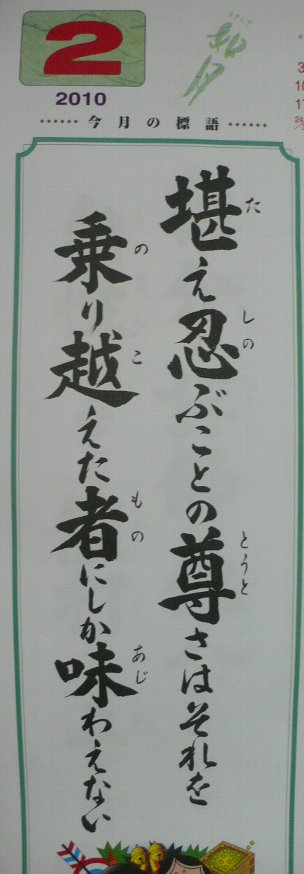 2
2010
……今月の標語……
堪え忍ぶことの尊さはそれを
た
しの
とうと
乗り越えた者にしか味わえない
の
こ
もの
あじ